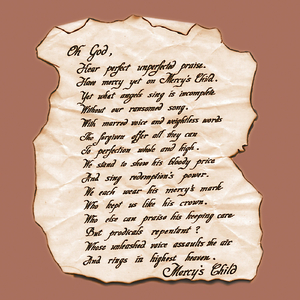 Oh God,
Hear perfect unperfected praise.
Have mercy yet on Mercy's Child.
Yet what angels sing is incomplete
Without our ransomed song.
With marred voice and weightless words
The forgiven offer all they can
To perfection whole and high.
We stand to show his bloody price
And sing redemption's power.
We each wear his mercy's mark
Who kept us like his crown.
Who else can praise his keeping care
But prodicals repentant ?
Whose unleashed voice assaults the air
And rings in highest heaven.
Mercy's Child